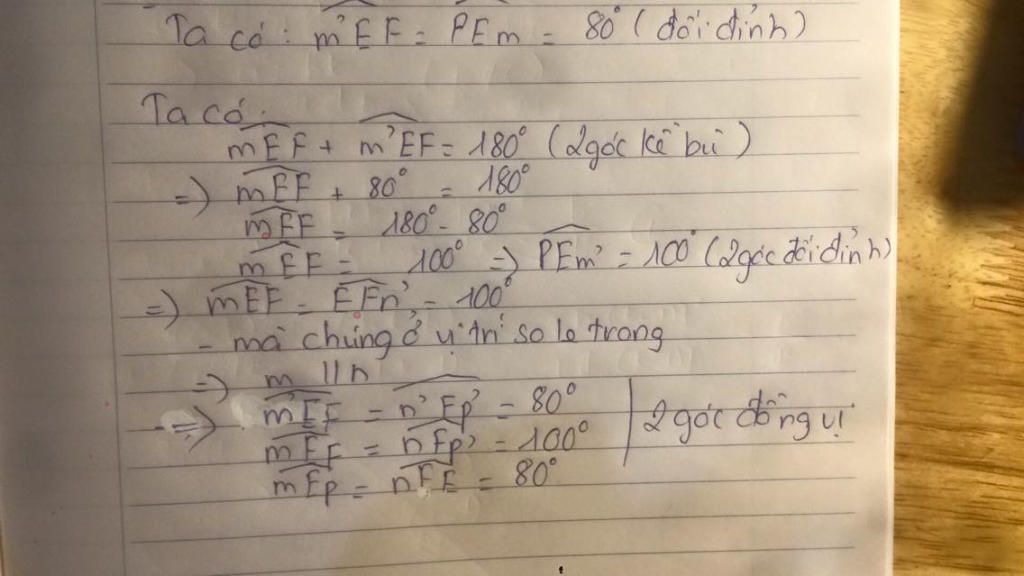 Ta có: m'EF = PEm = 80° (đối đỉnh)
Ta có:
mEF + m'EF = 180° (2 góc kề bù)
=> mEF + 80° = 180°
mEF = 180° - 80°
mEF = 100° => PEm' = 100° (2 góc đối đỉnh)
=> mEF = EFn' = 100°
- mà chúng ở vị trí so le trong
=> m // n
=> m'EF = n'Fp' = 80°
mEF = nFp' = 100° 2 góc đồng vị
mEp = nFE = 80°